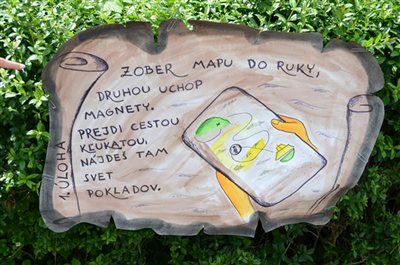 1. ÚLOHA
ZOBER MAPU DO RUKY,
DRUHOU UCHOP
MAGNETY.
PREJDI CESTOU
KĽUKATOU,
NÁJDEŠ TAM
SVET
POKLADOV.